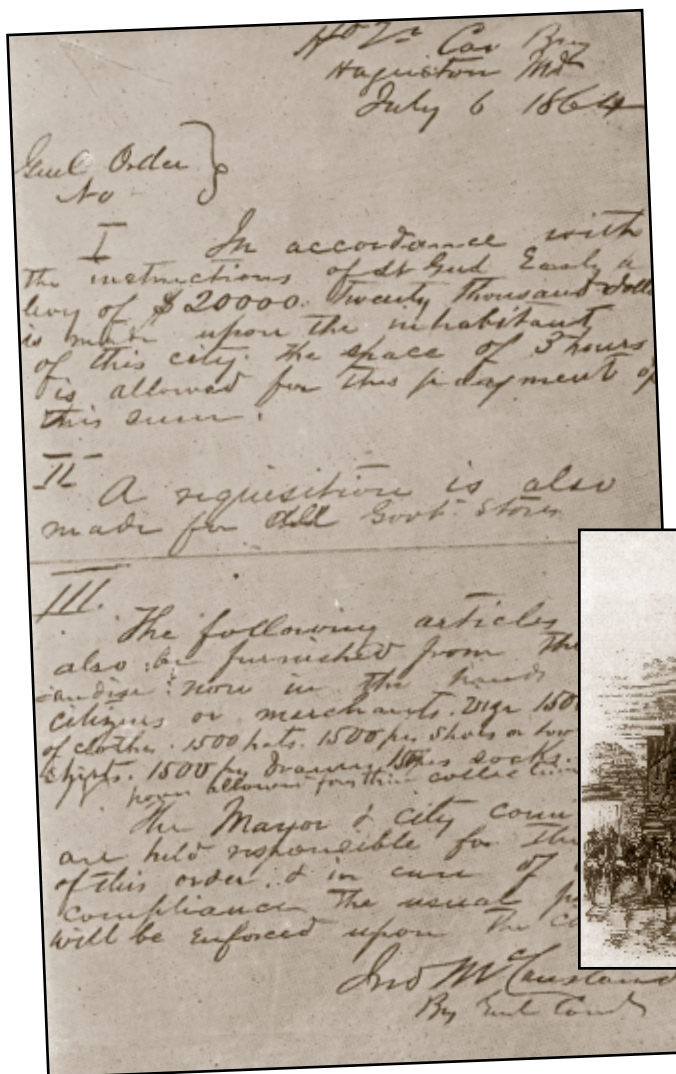 Hd Qrs Cav Brig
Hagerstown Md
July 6 1864
Genl Order
No
I In accordance with
the instructions of Lt Genl Early a
levy of $20000. Twenty thousand dolla
is made upon the inhabitant
of this city. The space of 3 hours
is allowed for the payment of
this sum.
II
A requisition is also
made for all Govt. Stores
III.
The following articles
also be furnished from the
candise now in the hands
citizens or merchants. Viz 150
of clothes. 1500 hats. 1500 prs Shoes or boo
Shirts. 1500 prs Drawers 1500 prs socks.
hours allowed for their collection
The Mayor & city coun
are held responsible for the
of this order. & in case of
compliance the usual p
will be enforced upon the c
Jno McCausland
Brig Genl Comd